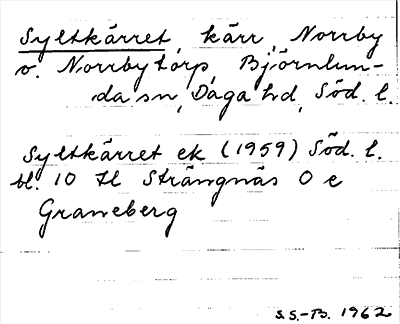 Syltkärret, kärr, Norrby
o. Norrbytorp, Björnlun-
da sn, Daga hd, Söd. l.
Syltkärret ek (1959) Söd. l.
bl. 10 tl Strängnäs O e
Graneberg
S.S.-B. 1962